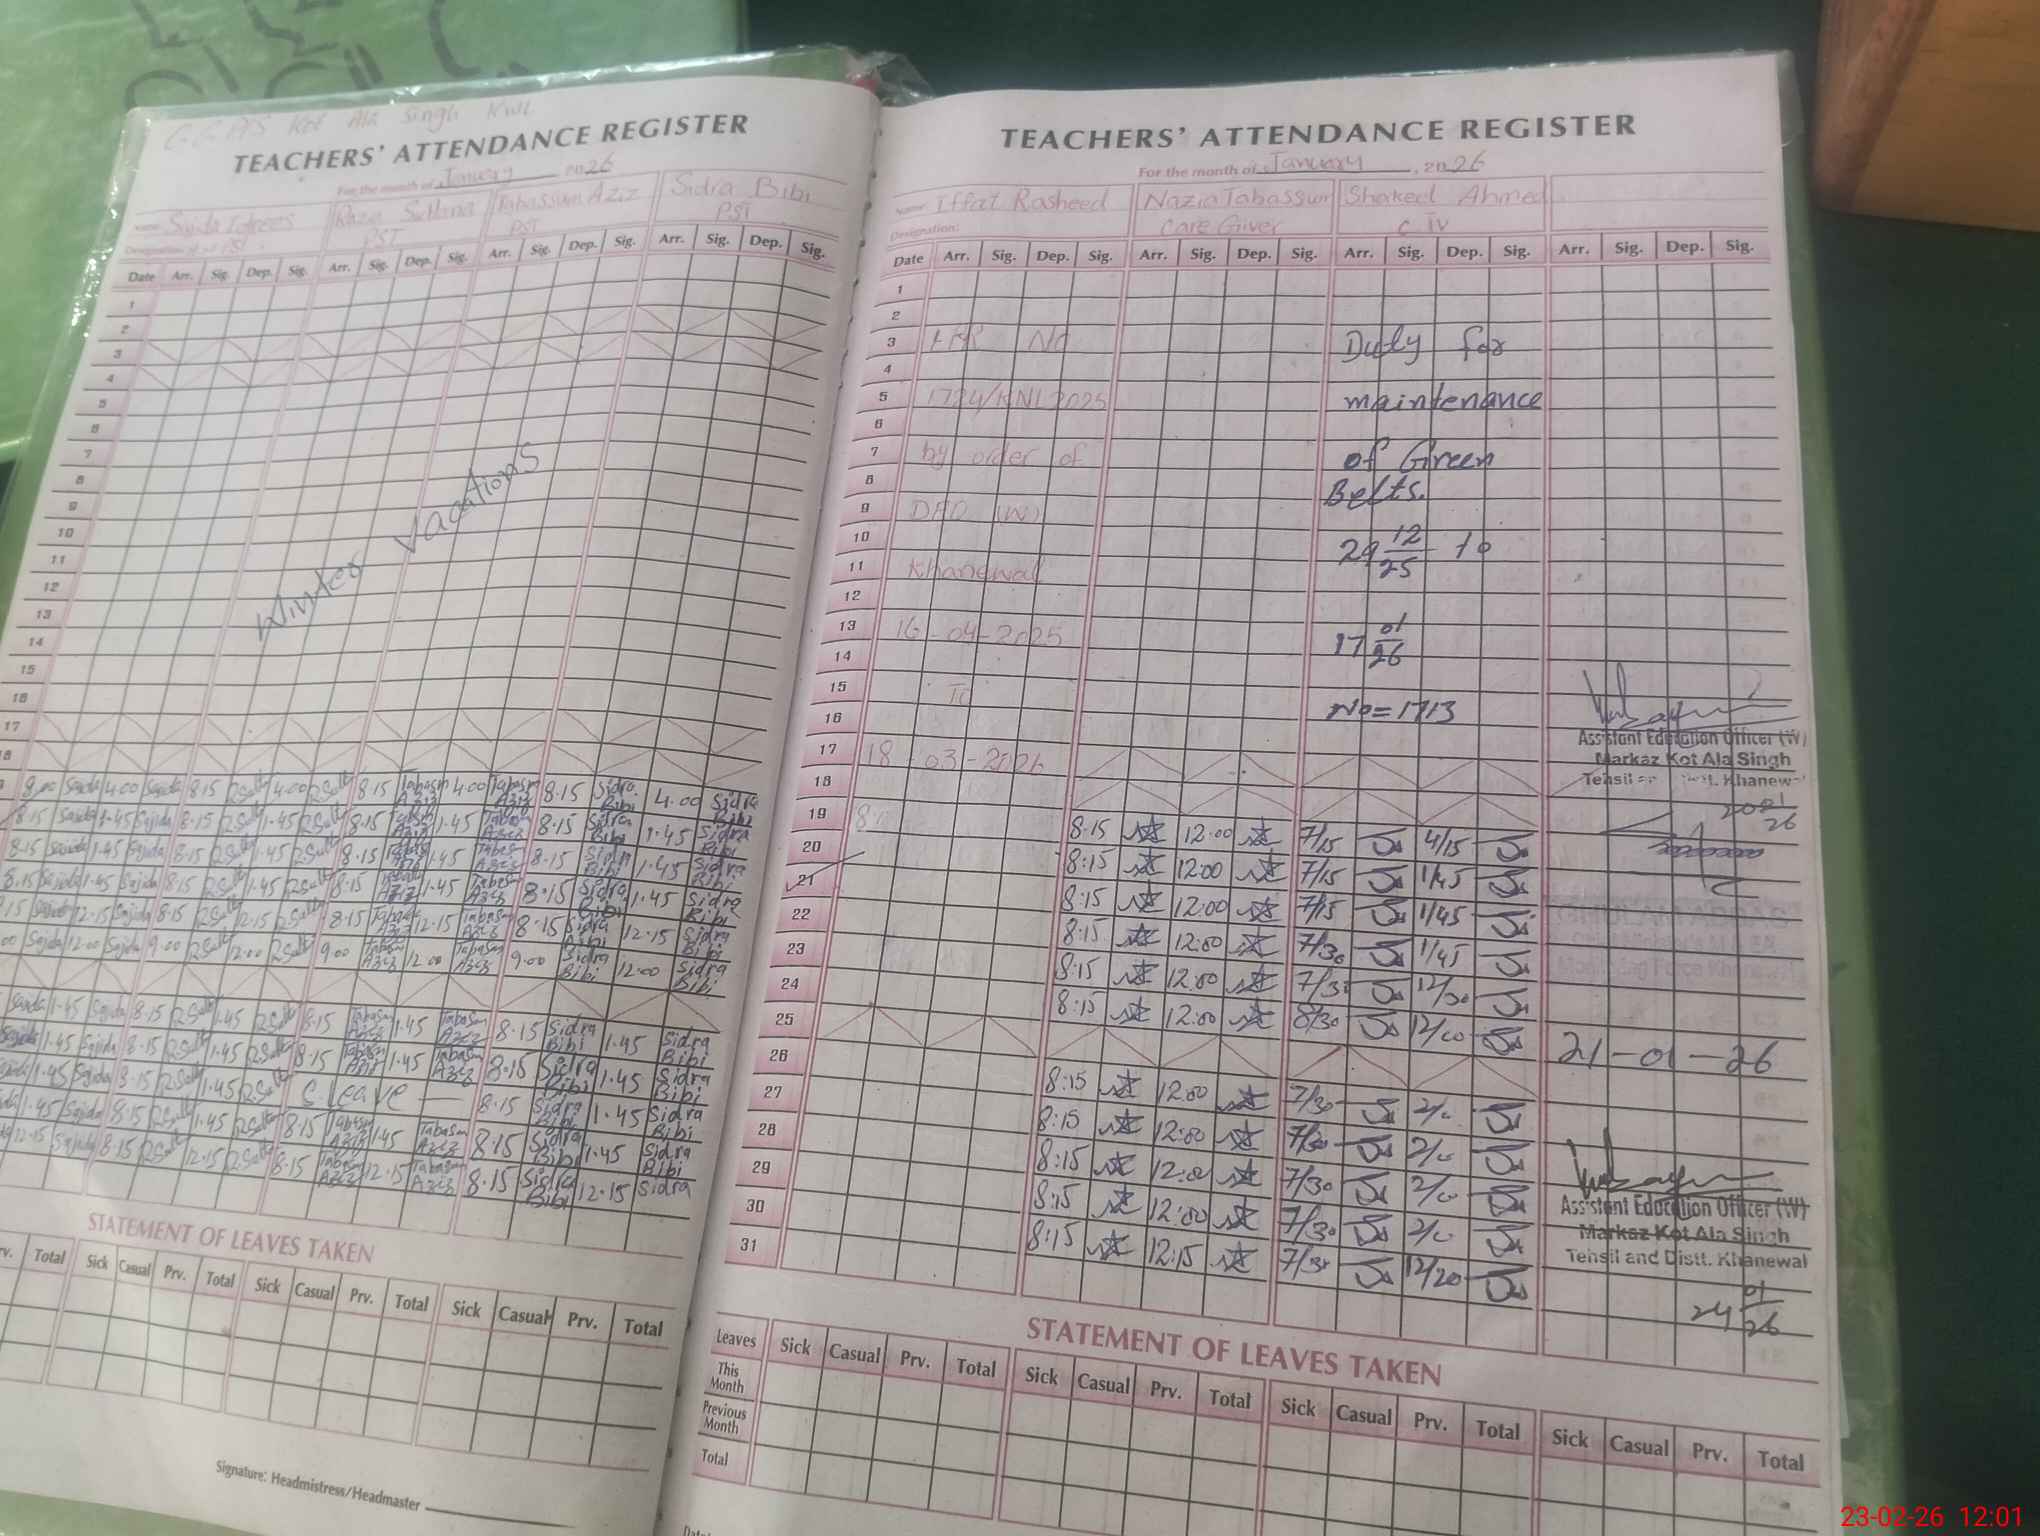 Kot Ala Singh KWL
TEACHERS' ATTENDANCE REGISTER
For the month of January 2026
Name: Sajida Idrees Razia Sultana Tabassum Aziz Sidra Bibi
Designation: PST PST PST PST
Date Arr. Sig. Dep. Sig. Arr. Sig. Dep. Sig. Arr. Sig. Dep. Sig. Arr. Sig. Dep. Sig.
1
2
3
4
5
6
7
8
9
10
11
12
13
14
15
16
17
Winter Vacations
8.15 4.00 8.15 Tabasm Aziz 4.00 Tabasm Aziz 8.15 Sidra Bibi 4.00 Sidra Bibi
8.15 Sajida 1.45 Sajida 8.15 1.45 8.15 Tabasm Aziz 1.45 Tabasm Aziz 8.15 Sidra Bibi 1.45 Sidra Bibi
8.15 Sajida 1.45 Sajida 8.15 1.45 8.15 1.45 Tabasm Aziz 8.15 Sidra Bibi 1.45 Sidra Bibi
8.15 Sajida 1.45 Sajida 8.15 1.45 8.15 Tabasm Aziz 1.45 Tabasm Aziz 8.15 Sidra Bibi 1.45 Sidra Bibi
Sajida 12.15 Sajida 8.15 12.15 8.15 Tabasm Aziz 12.15 Tabasm Aziz 8.15 Sidra Bibi 12.15 Sidra Bibi
Sajida 12.00 Sajida 9.00 12.00 9.00 Tabasm Aziz 12.00 Tabasm Aziz 9.00 Sidra Bibi 12.00 Sidra Bibi
Sajida 1.45 Sajida 8.15 1.45 8.15 Tabasm Aziz 1.45 Tabasm Aziz 8.15 Sidra Bibi 1.45 Sidra Bibi
1.45 Sajida 8.15 1.45 8.15 Tabasm Aziz 1.45 Tabasm Aziz 8.15 Sidra Bibi 1.45 Sidra Bibi
1.45 Sajida 8.15 1.45 C leave 8.15 Sidra Bibi 1.45 Sidra Bibi
1.45 Sajida 8.15 1.45 8.15 Tabasm Aziz 1.45 Tabasm Aziz 8.15 Sidra Bibi 1.45 Sidra Bibi
12.15 Sajida 8.15 12.15 8.15 Tabasm Aziz 12.15 Tabasm Aziz 8.15 Sidra Bibi 12.15 Sidra
STATEMENT OF LEAVES TAKEN
Total Sick Casual Prv. Total Sick Casual Prv. Total Sick Casual Prv. Total
Signature: Headmistress/Headmaster
TEACHERS' ATTENDANCE REGISTER
For the month of January, 2026
Name: Iffat Rasheed Nazia Tabassum Shakeel Ahmed
Designation: Care Giver C IV
Date Arr. Sig. Dep. Sig. Arr. Sig. Dep. Sig. Arr. Sig. Dep. Sig. Arr. Sig. Dep. Sig.
1
2
3 No Duty for
4
5 1724/KWL 2025 maintenance
6
7 by order of of Green
8 Belts.
9 DEO (W)
10 29 12/25 to
11 Khanewal
12
13 16-04-2025 17 01/26
14
15 To
16 No=1713
Assistant Education Officer (W)
Markaz Kot Ala Singh
Tehsil Distt. Khanewal
20 01/26
17 18-03-2026
18
19 8:15 12:00 7/15 4/15
20 8:15 12:00 7/15 1/45
21 8:15 12:00 7/15 1/45
22 8:15 12:00 7/30 1/45
23 8:15 12:00 7/30 12/30
24 8:15 12:00 8/30 12/00
25
21-01-26
26 8:15 12:00 7/30 2/0
27 8:15 12:00 7/30 2/0
28 8:15 12:00 7/30 2/0
29 8:15 12:00 7/30 2/0
30 8:15 12:15 7/30 12/20
31
Assistant Education Officer (W)
Markaz Kot Ala Singh
Tehsil and Distt. Khanewal
24 01/26
STATEMENT OF LEAVES TAKEN
Leaves Sick Casual Prv. Total Sick Casual Prv. Total Sick Casual Prv. Total Sick Casual Prv. Total
This Month
Previous Month
Total
23-02-26 12:01